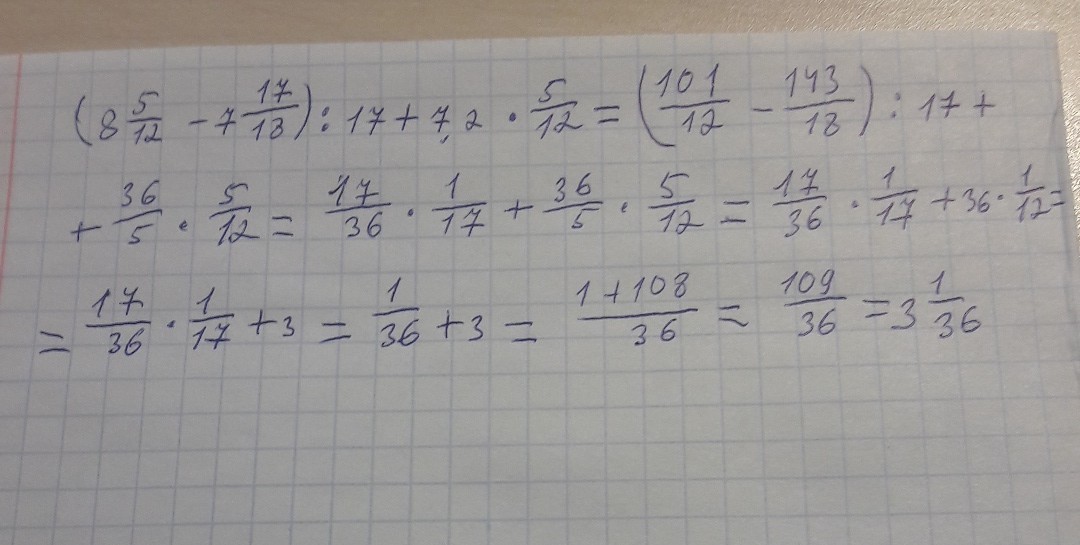 (8 5/12 - 7 17/18) : 17 + 7,2 · 5/12 = (101/12 - 143/18) : 17 +
+ 36/5 · 5/12 = 17/36 · 1/17 + 36/5 · 5/12 = 17/36 · 1/17 + 36 · 1/12 =
= 17/36 · 1/17 + 3 = 1/36 + 3 = (1+108)/36 = 109/36 = 3 1/36